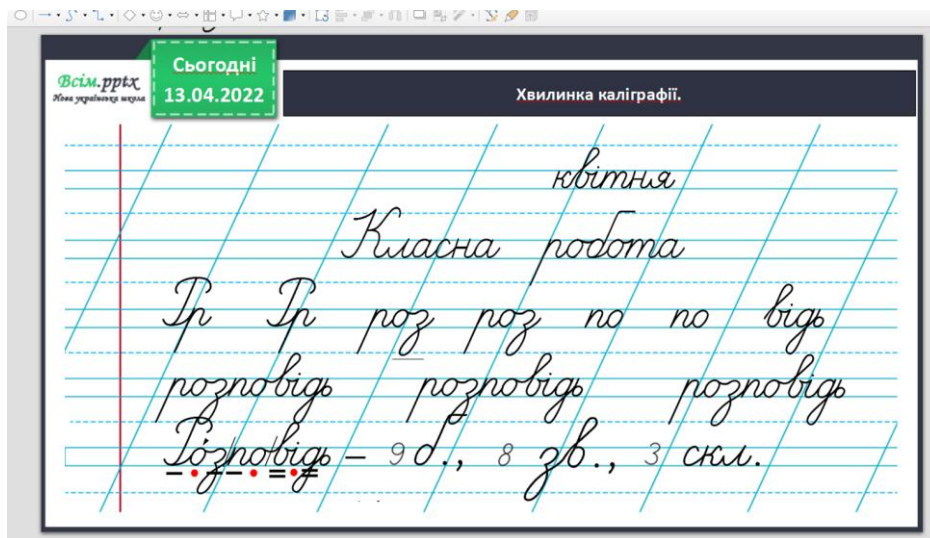 Всім.pptx
Нова українська школа
Сьогодні
13.04.2022
Хвилинка каліграфії.
квітня
Класна робота
Рр Рр роз роз по по відь
розповідь розповідь розповідь
Ро́зповідь – 9 б., 8 зв., 3 скл.